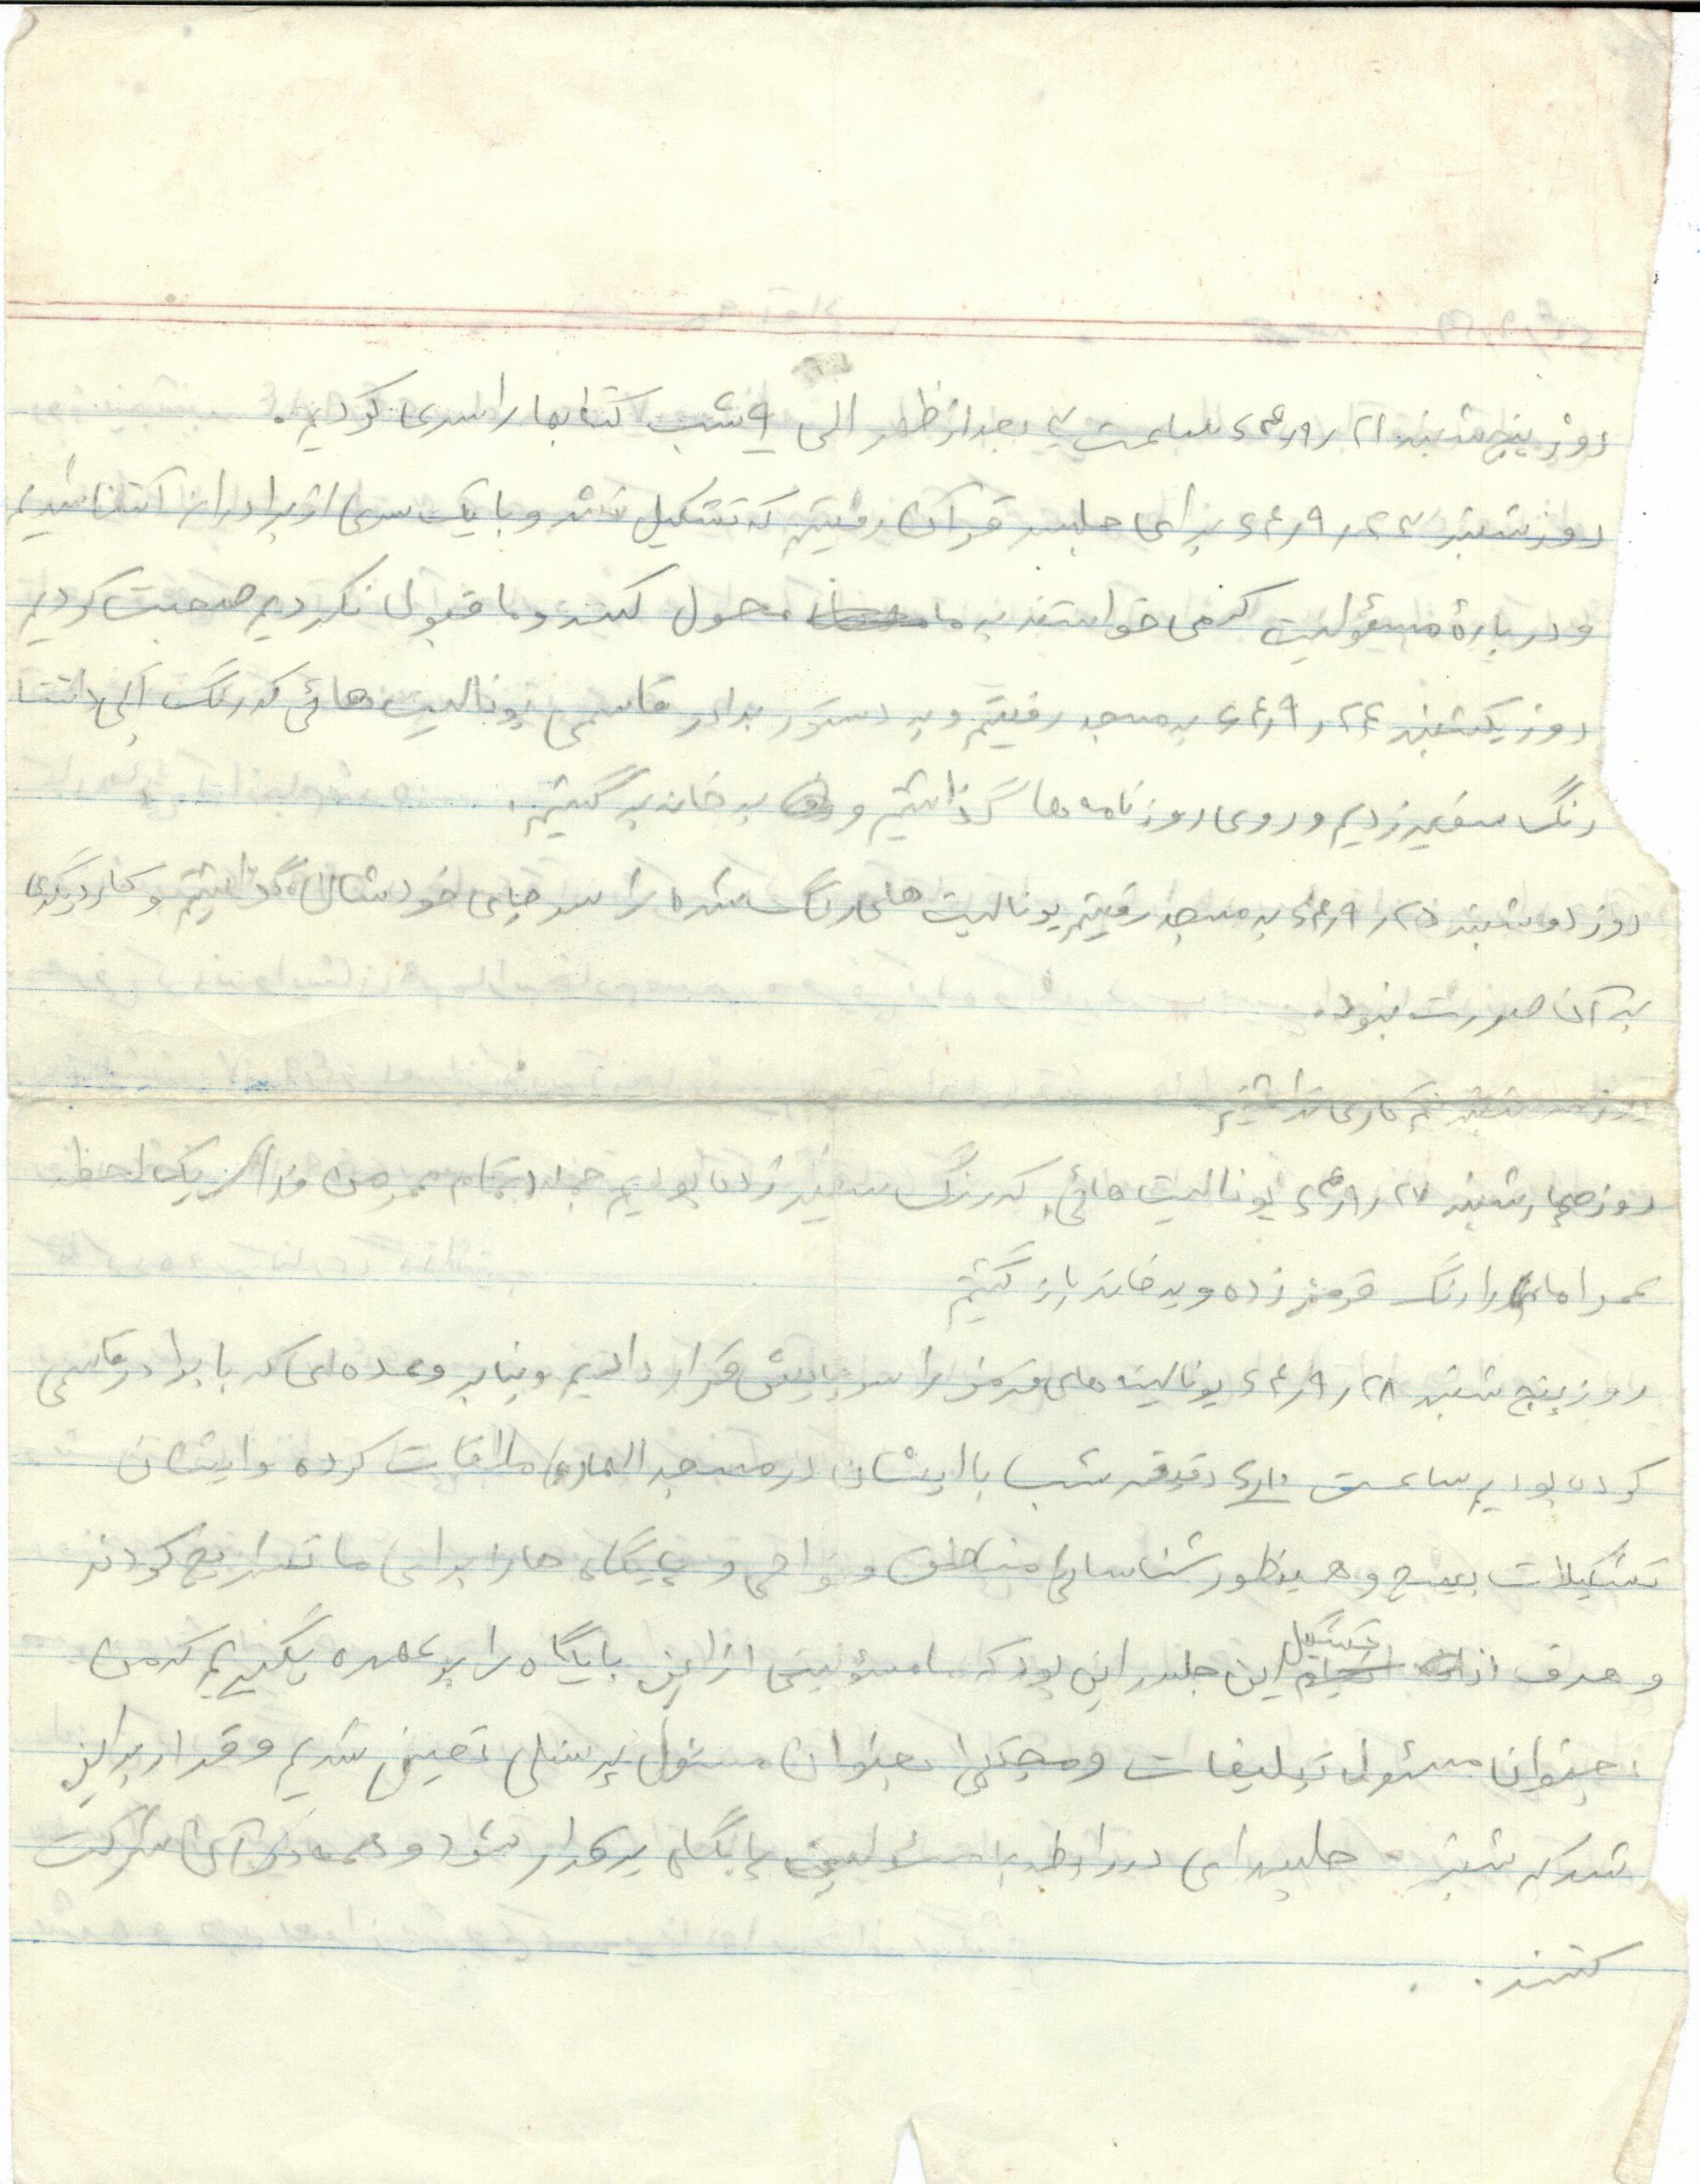 روز پنج شنبه ۶۴٫۹٫۲۱ ساعت ۳ بعد از ظهر الی ۹ شب کتابها را سری کردیم.
روز شنبه ۶۴٫۹٫۲۳ برای جلسه قرآن رفتیم که تشکیل نشد و با یک سری از برادران آشنا شدیم
و درباره مسئولیت که می خواستند به ما محول کنند و ما قبول نکردیم صحبت کردیم
روز یکشنبه ۶۴٫۹٫۲۴ به مسجد رفتیم و به دستور برادر قاسمی یونالیت هائی که رنگ آبی داشتند
رنگ سفید زدیم و روی روزنامه ها گذاشتیم و به خانه برگشتیم.
روز دوشنبه ۶۴٫۹٫۲۵ به مسجد رفتیم یونالیت های رنگ شده را سر جای خودشان گذاشتیم و کار دیگری
به آن صورت نبود.
روز سه شنبه هم کاری نداشتیم
روز چهارشنبه ۶۴٫۹٫۲۷ یونالیت هائی که رنگ سفید زده بودیم جمله تمام عمر من فدای یک لحظه
عمر امام را رنگ قرمز زده و به خانه باز گشتیم
روز پنج شنبه ۶۴٫۹٫۲۸ یونالیت های قرمز را سر جایش قرار دادیم و بنابر وعده ای که با برادر قاسمی
کرده بودیم ساعت دقیقه شب با ایشان در مسجد ملاقات کرده و ایشان
تشکیلات بسیج و همینطور شناسائی مناطق و نواحی و پایگاه ها را برای ما تشریح کردند
و هدف از تشکیل این جلسه این بود که ما مسئولیتی از این پایگاه را بر عهده بگیریم که من
بعنوان مسئول تبلیغات و مجتبی بعنوان مسئول پرسنلی تعیین شدیم و قرار بر این
شد که شنبه جلسه ای در رابطه با مسئولین پایگاه برگزار شود و همه در آن شرکت
کنند.